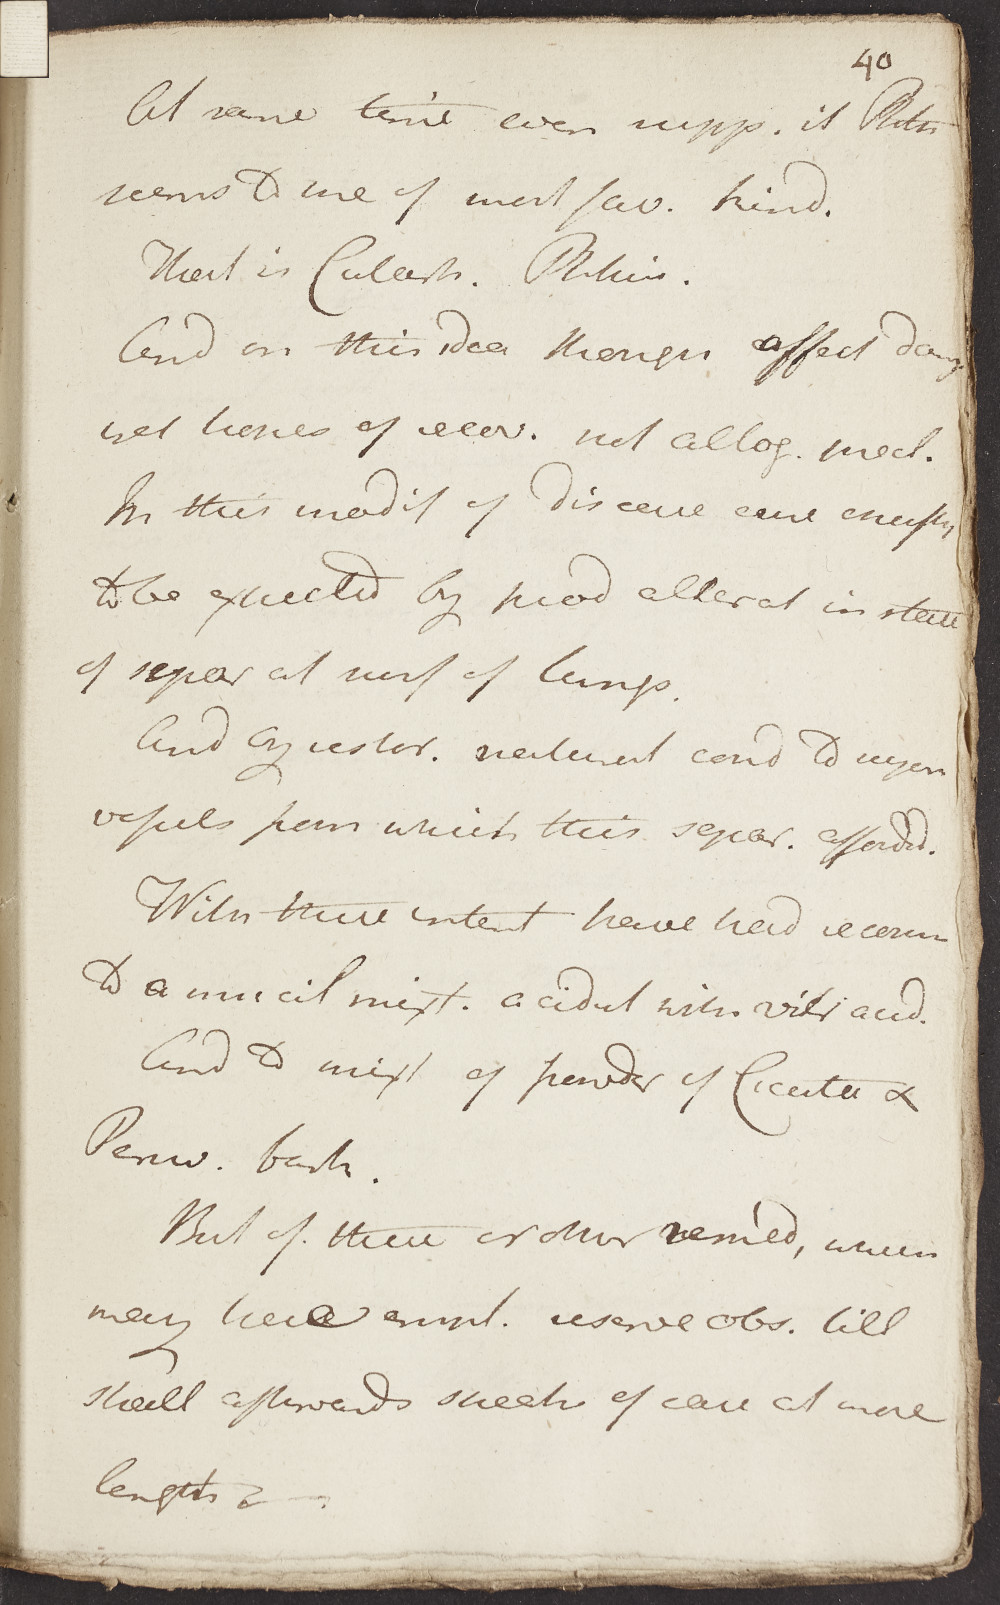 40
At same time even supp. it Phthis
seems to me of most fav. kind.
That is Catarrh. Phthisis.
And on this idea though affect dang
yet hopes of recov. not altog. prec.
In this modif of disease cure chiefly
to be expected by prod alterat in state
of separ at surf of lungs.
And by restor. natural cond to
vessels from which this separ. afforded.
With these intent have had recom
to a mucil mixt. acidul with vitr acid.
And to mixt of powder of Cicuta &
Peruv. bark.
But of these or other remed, when
may have empl. reserve obs. till
shall afterwards speak of case at more
length